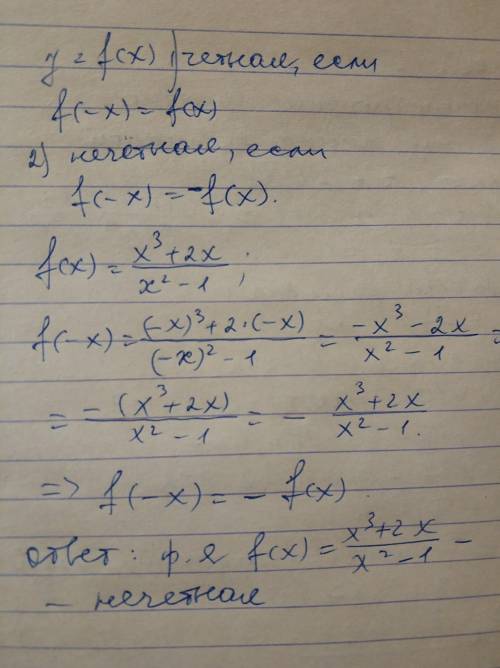 y = f(x) 1) четная, если
f(-x) = f(x)
2) нечётная, если
f(-x) = -f(x).
f(x) = \frac{x^3+2x}{x^2-1};
f(-x) = \frac{(-x)^3+2·(-x)}{(-x)^2-1} = \frac{-x^3-2x}{x^2-1} =
= \frac{-(x^3+2x)}{x^2-1} = - \frac{x^3+2x}{x^2-1}.
=> f(-x) = - f(x).
ответ: ф.я f(x) = \frac{x^3+2x}{x^2-1} -
- нечетная